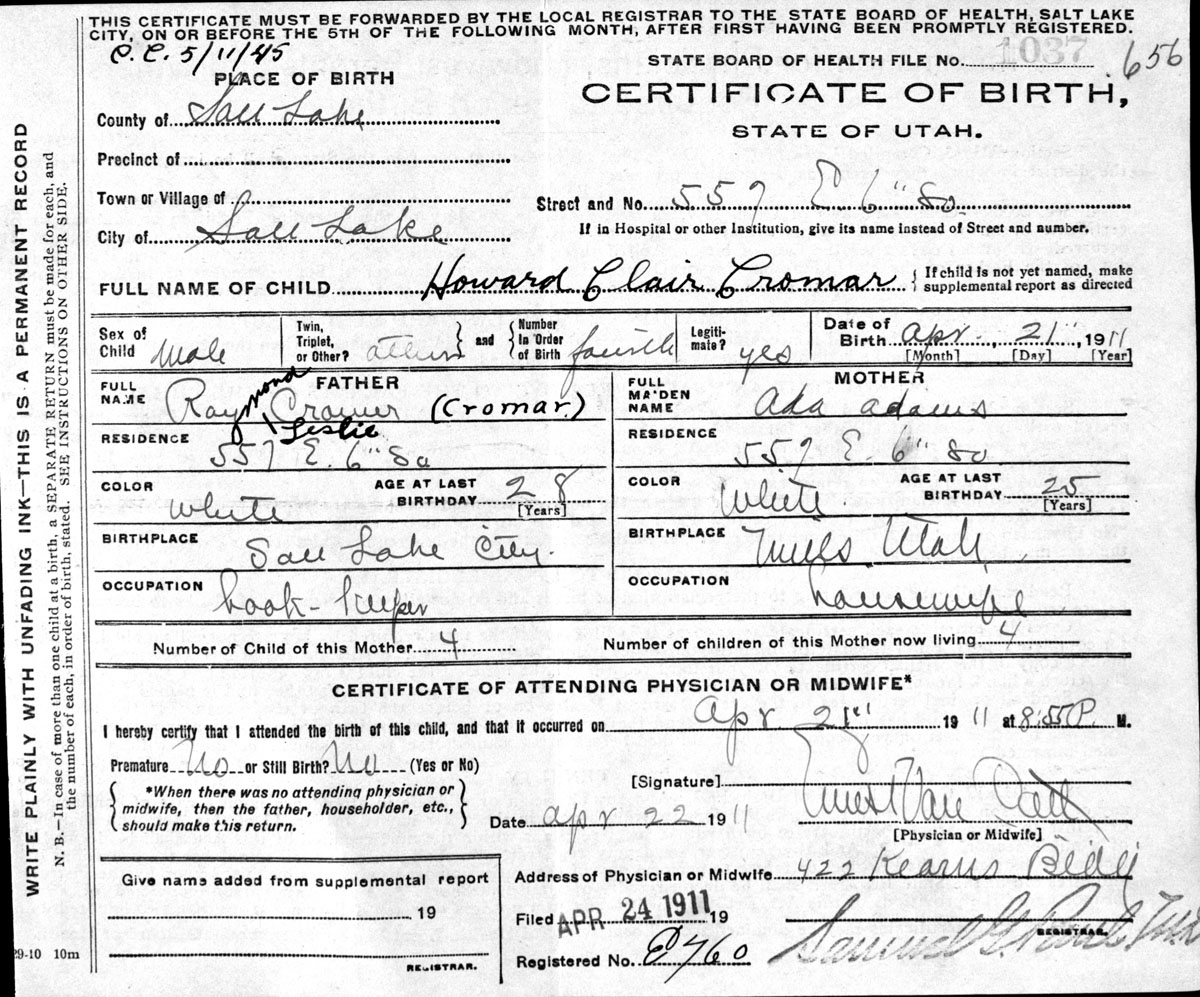 THIS CERTIFICATE MUST BE FORWARDED BY THE LOCAL REGISTRAR TO THE STATE BOARD OF HEALTH, SALT LAKE
CITY, ON OR BEFORE THE 5TH OF THE FOLLOWING MONTH, AFTER FIRST HAVING BEEN PROMPTLY REGISTERED.
C.C. 5/11/45
STATE BOARD OF HEALTH FILE No. 1037 656
PLACE OF BIRTH
CERTIFICATE OF BIRTH,
STATE OF UTAH.
County of Salt Lake
Precinct of
Town or Village of
Street and No. 557 E 6" So.
City of Salt Lake
If in Hospital or other Institution, give its name instead of Street and number.
FULL NAME OF CHILD Howard Clair Cromar { If child is not yet named, make
supplemental report as directed
Sex of Child male
Twin, Triplet, or Other? } and { Number In Order of Birth fourth
Legiti-mate? yes
Date of Birth Apr. 21", 1911
[Month] [Day] [Year]
FATHER
FULL NAME Raymond Leslie Cromer (Cromar)
RESIDENCE
557 E. 6" So
COLOR White AGE AT LAST BIRTHDAY 28
[Years]
BIRTHPLACE
Salt Lake City.
OCCUPATION
book-keeper
MOTHER
FULL MAIDEN NAME Ada Adams
RESIDENCE
557 E 6" So
COLOR White AGE AT LAST BIRTHDAY 25
[Years]
BIRTHPLACE
Mills Utah
OCCUPATION
housewife
Number of Child of this Mother 4 Number of children of this Mother now living 4
CERTIFICATE OF ATTENDING PHYSICIAN OR MIDWIFE*
I hereby certify that I attended the birth of this child, and that it occurred on Apr 21st 1911 at 8:55 P. M.
Premature No or Still Birth? No (Yes or No)
{ *When there was no attending physician or
midwife, then the father, householder, etc.,
should make this return. }
[Signature]
Date Apr 22 1911
[Physician or Midwife]
Address of Physician or Midwife 422 Kearns Bldg
Give name added from supplemental report
19
REGISTRAR.
Filed APR 24 1911 19
REGISTRAR.
Registered No. E760
29-10 10m
WRITE PLAINLY WITH UNFADING INK—THIS IS A PERMANENT RECORD
N. B.—In case of more than one child at a birth, a SEPARATE RETURN must be made for each, and
the number of each, in order of birth, stated. SEE INSTRUCTIONS ON OTHER SIDE.